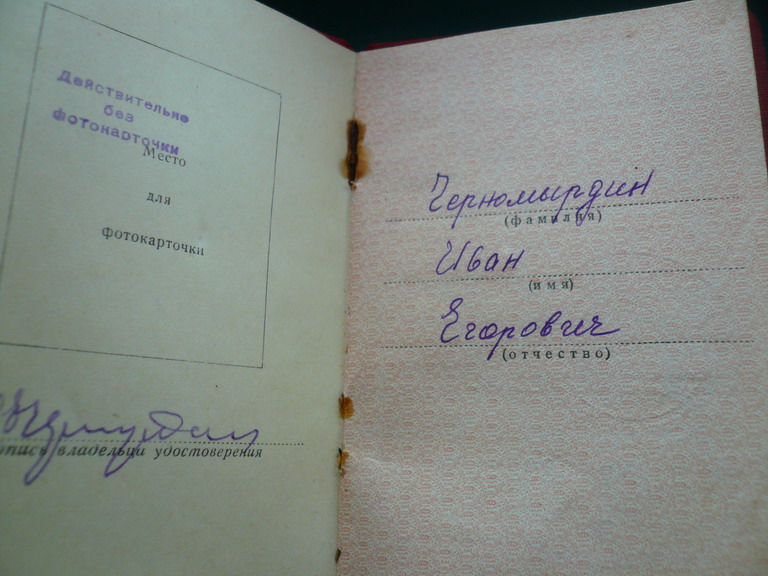 Действительно
без
фотокарточки
Место
для
фотокарточки
подпись владельца удостоверения
Черномырдин
(фамилия)
Иван
(имя)
Егорович
(отчество)